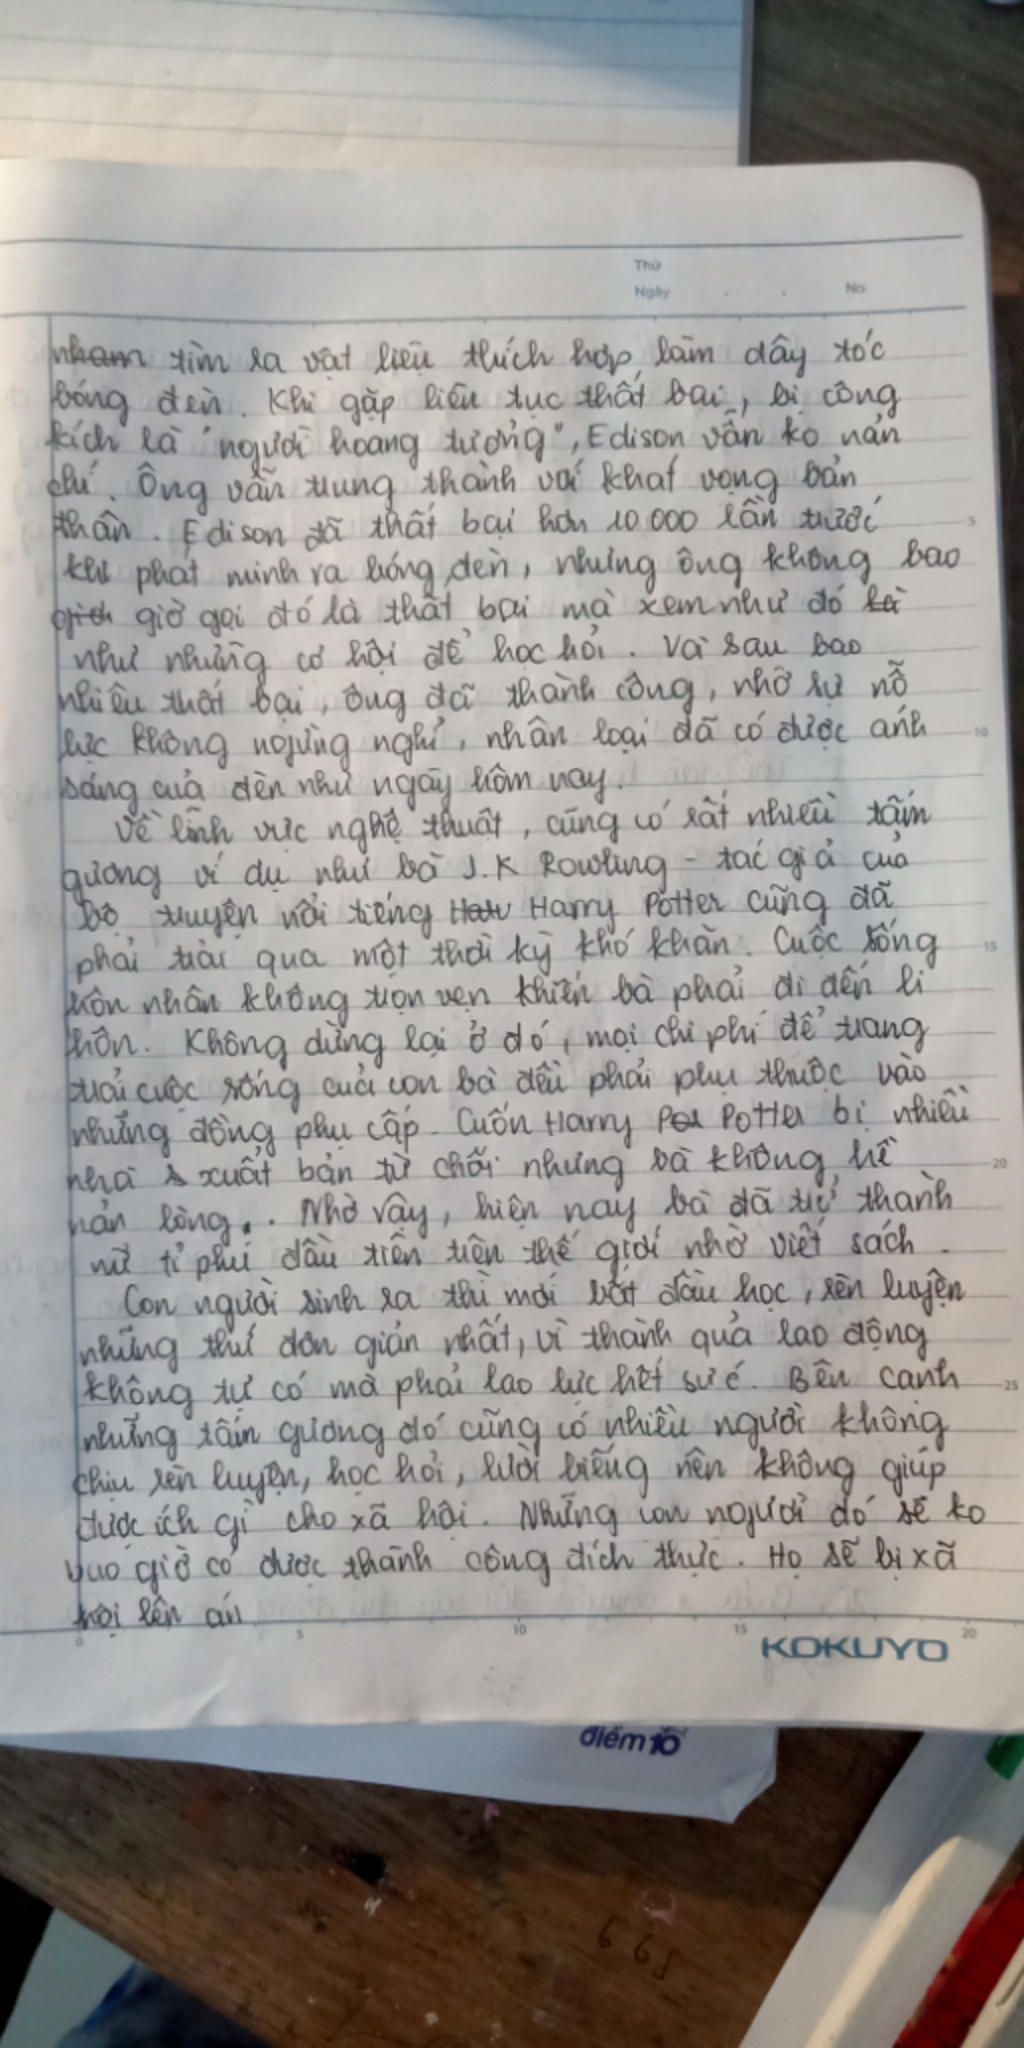 Thứ
Ngày . . No
nham tìm ra vật liệu thích hợp làm dây tóc
bóng đèn. Khi gặp liên tục thất bại, bị công
kích là "người hoang tưởng", Edison vẫn ko nản
chí. Ông vẫn trung thành với khát vọng bản
thân. Edison đã thất bại hơn 10 000 lần trước
khi phát minh ra bóng đèn, nhưng ông không bao
giờ gọi đó là thất bại mà xem như đó là
như những cơ hội để học hỏi. Và sau bao
nhiêu thất bại, ông đã thành công, nhờ sự nỗ
lực không ngừng nghỉ, nhân loại đã có được ánh
sáng của đèn như ngày hôm nay.
Về lĩnh vực nghệ thuật, cũng có rất nhiều tấm
gương ví dụ như bà J.K Rowling - tác giả của
bộ truyện nổi tiếng Harry Potter cũng đã
phải trải qua một thời kỳ khó khăn. Cuộc sống
hôn nhân không trọn vẹn khiến bà phải đi đến li
hôn. Không dừng lại ở đó, mọi chi phí để trang
trải cuộc sống của con bà đều phải phụ thuộc vào
những đồng phụ cấp. Cuốn Harry Potter bị nhiều
nhà xuất bản từ chối nhưng bà không hề
nản lòng. Nhờ vậy, hiện nay bà đã trở thành
nữ tỉ phú đầu tiên trên thế giới nhờ viết sách.
Con người sinh ra thì mới bắt đầu học, rèn luyện
những thứ đơn giản nhất, vì thành quả lao động
không tự có mà phải lao lực hết sức. Bên cạnh
những tấm gương đó cũng có nhiều người không
chịu rèn luyện, học hỏi, lười biếng nên không giúp
được ích gì cho xã hội. Những con người đó sẽ ko
bao giờ có được thành công đích thực. Họ sẽ bị xã
hội lên án
KOKUYO
điểm 10
665